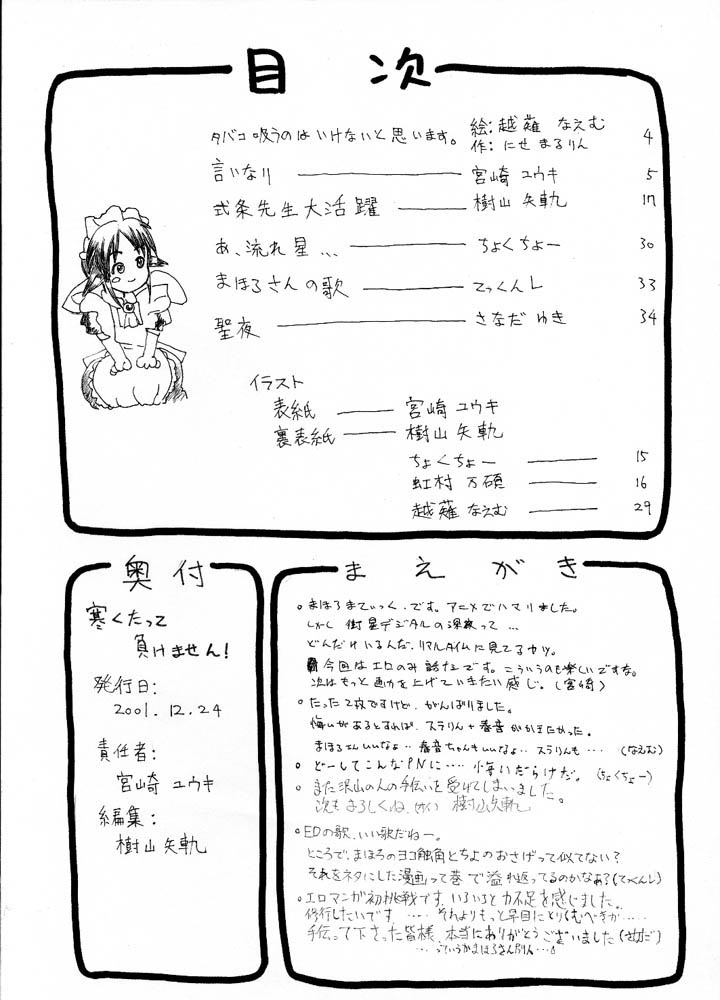 目次
タバコ吸うのはいけないと思います。 絵:越薙 なえむ 4
作:にせ まるりん
言いなり 宮崎 ユウキ 5
式条先生大活躍 樹山 矢軌 17
あ、流れ星… ちょくちょー 30
まほろさんの歌 てっくんL 33
聖夜 さなだ ゆき 34
イラスト
表紙 宮崎 ユウキ
裏表紙 樹山 矢軌
ちょくちょー 15
虹村 万碩 16
越薙 なえむ 29
奥付
寒くたって
負けません!
発行日:
2001.12.24
責任者:
宮崎 ユウキ
編集:
樹山 矢軌
まえがき
。まほろまてぃっく、です。アニメでハマりました。
しかし 衛星デジタルの深夜って…
どんだけいるんだ、リアルタイムに見てるヤツ。
今回はエロのみ話なんです。こういうのも楽しいですな。
次はもっと画力を上げていきたい感じ。(宮崎)
。たった2枚ですけど、がんばりました。
悔いがあるとすれば、スラりん+春音がかきたかった。
まほろさんいいなょ‥春音ちゃんもいいなょ‥スラりんも…(なえむ)
。どーしてこんなPNに…悔いだらけだ。(ちょくちょー)
。また沢山の人の手伝いを受けてしまいました。
次もよろしくね。 樹山矢軌
。EDの歌、いい歌だねー。
ところで、まほろのヨコ触角とちよのおさげって似てない?
それをネタにした漫画って巷で溢れ返ってるのかなぁ?(てっくんL)
。エロマンガ初挑戦です。いろいろと力不足を感じました。
修行したいです….それよりもっと早目にとりくむべきが…..
手伝って下さった皆様、本当にありがとうございました(さなだ)